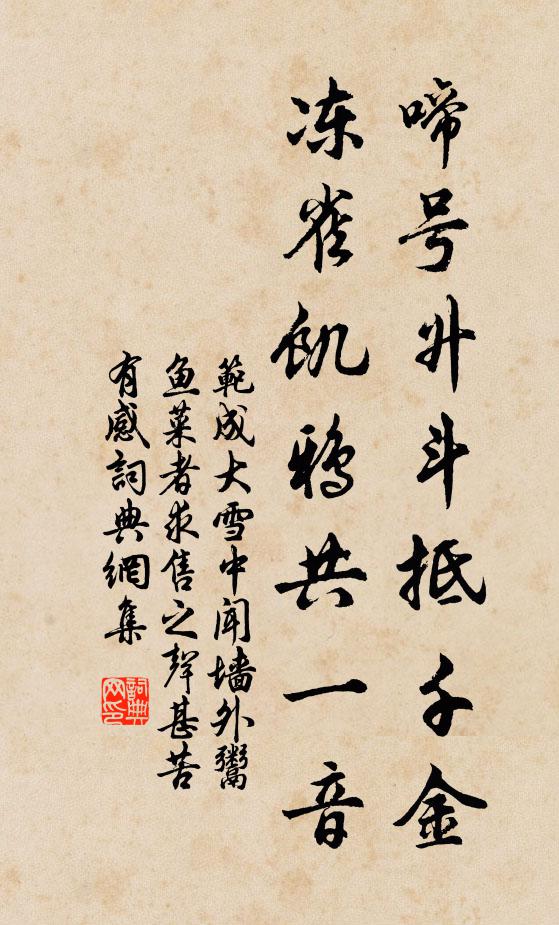 啼号升斗抵千金
冻雀饥鸦共一音
範成大雪中闻墙外鬻
鱼菜者求售之聲甚苦
有感詞典網集
詞典
网印